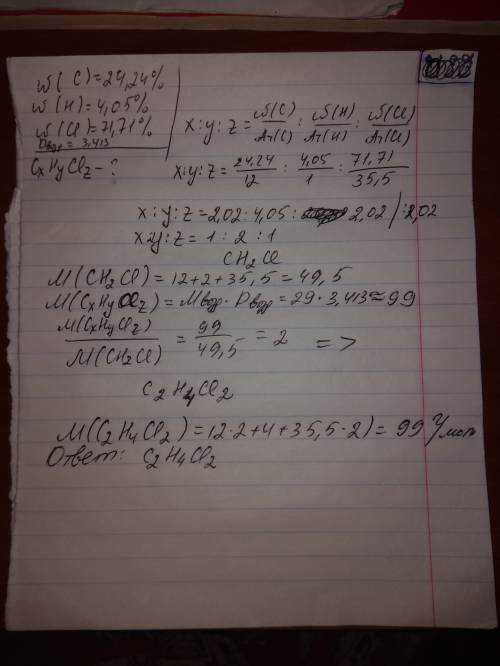 w(C)=24,24%
w(H)=4,05%
w(Cl)=71,71%
Dвозд = 3,413
CxHyClz - ?
x:y:z = w(C)/Ar(C) : w(H)/Ar(H) : w(Cl)/Ar(Cl)
x:y:z = 24,24/12 : 4,05/1 : 71,71/35,5
x:y:z = 2,02 : 4,05 : 2,02 / :2,02
x:y:z = 1 : 2 : 1
CH2Cl
M(CH2Cl) = 12+2+35,5 = 49,5
M(CxHyClz) = Mвозд · Dвозд = 29 · 3,413 ≈ 99
M(CxHyClz)/M(CH2Cl) = 99/49,5 = 2 =>
C2H4Cl2
M(C2H4Cl2) = 12·2+4+35,5·2) = 99 г/моль
Ответ: C2H4Cl2